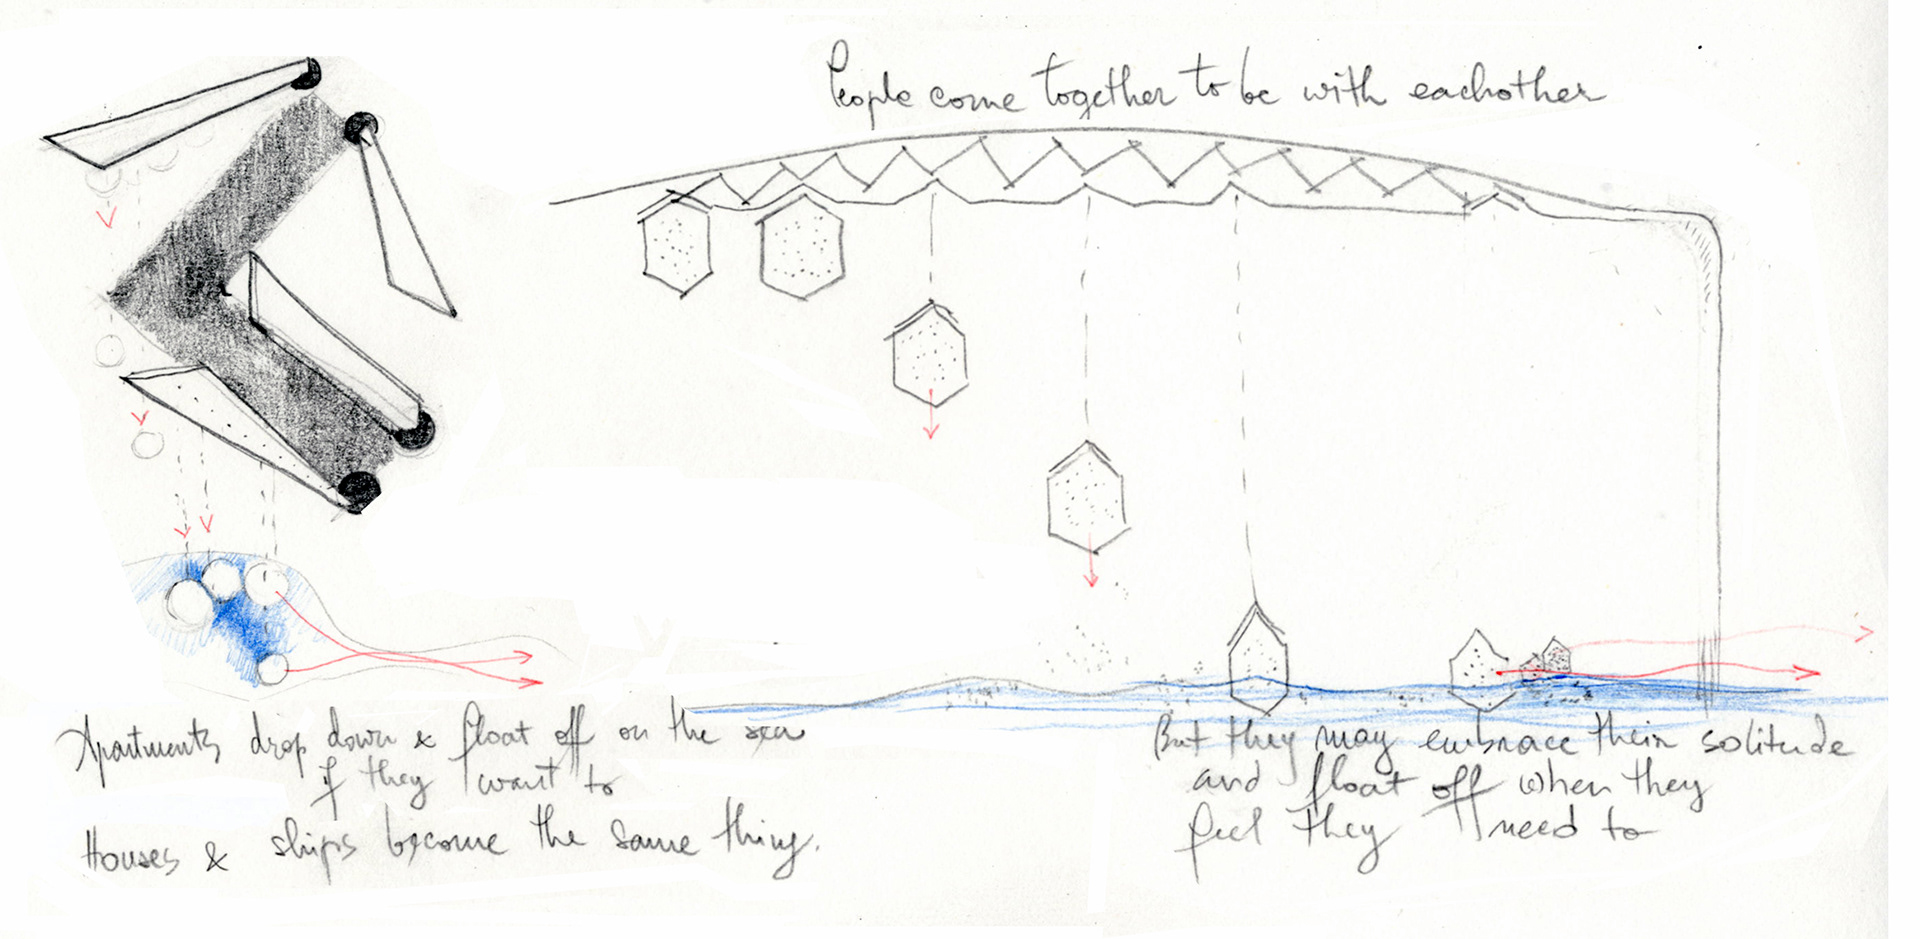 People come together to be with eachother
Apartments drop down & float off on the sea
if they want to
Houses & ships become the same thing.
But they may embrace their solitude
and float off when they
feel they need to